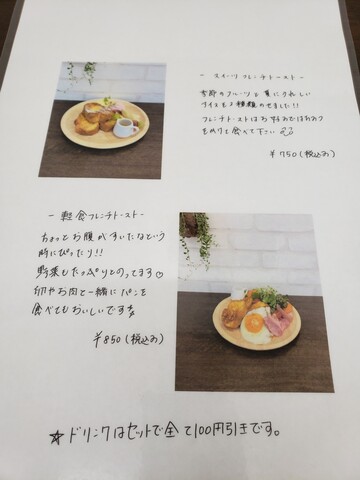 ー スイーツ フレンチトースト ー
季節のフルーツと夏にうれしい
アイスを2種類のせました!!
フレンチトーストはお好みではちみつ
をかけて食べて下さい
¥750(税込み)
ー 軽食フレンチトースト ー
ちょっとお腹がすいたなという
時にぴったり!!
野菜もたっぷりとのってます♡
卵やお肉と一緒にパンを
食べてもおいしいです
¥850(税込み)
☆ドリンクはセットで全て100円引きです。